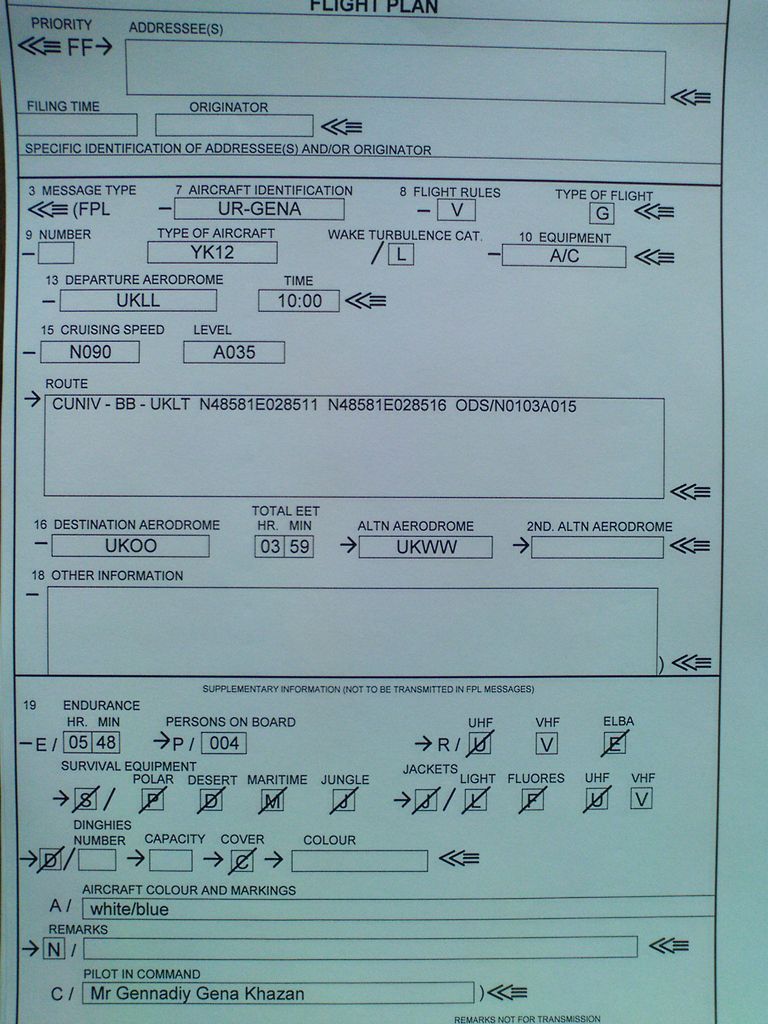 FLIGHT PLAN
PRIORITY ADDRESSEE(S)
FF
FILING TIME ORIGINATOR
SPECIFIC IDENTIFICATION OF ADDRESSEE(S) AND/OR ORIGINATOR
3 MESSAGE TYPE 7 AIRCRAFT IDENTIFICATION 8 FLIGHT RULES TYPE OF FLIGHT
(FPL – UR-GENA – V G
9 NUMBER TYPE OF AIRCRAFT WAKE TURBULENCE CAT. 10 EQUIPMENT
– YK12 / L – A/C
13 DEPARTURE AERODROME TIME
– UKLL 10:00
15 CRUISING SPEED LEVEL
– N090 A035
ROUTE
→ CUNIV - BB - UKLT N48581E028511 N48581E028516 ODS/N0103A015
TOTAL EET
16 DESTINATION AERODROME HR. MIN ALTN AERODROME 2ND. ALTN AERODROME
– UKOO 03 59 → UKWW →
18 OTHER INFORMATION
– )
SUPPLEMENTARY INFORMATION (NOT TO BE TRANSMITTED IN FPL MESSAGES)
19 ENDURANCE
HR. MIN PERSONS ON BOARD UHF VHF ELBA
– E / 05 48 → P / 004 → R / U V E
SURVIVAL EQUIPMENT JACKETS
POLAR DESERT MARITIME JUNGLE LIGHT FLUORES UHF VHF
→ S / P D M J → J / L F U V
DINGHIES
NUMBER CAPACITY COVER COLOUR
→ D / → → C →
AIRCRAFT COLOUR AND MARKINGS
A / white/blue
REMARKS
→ N /
PILOT IN COMMAND
C / Mr Gennadiy Gena Khazan )
REMARKS NOT FOR TRANSMISSION